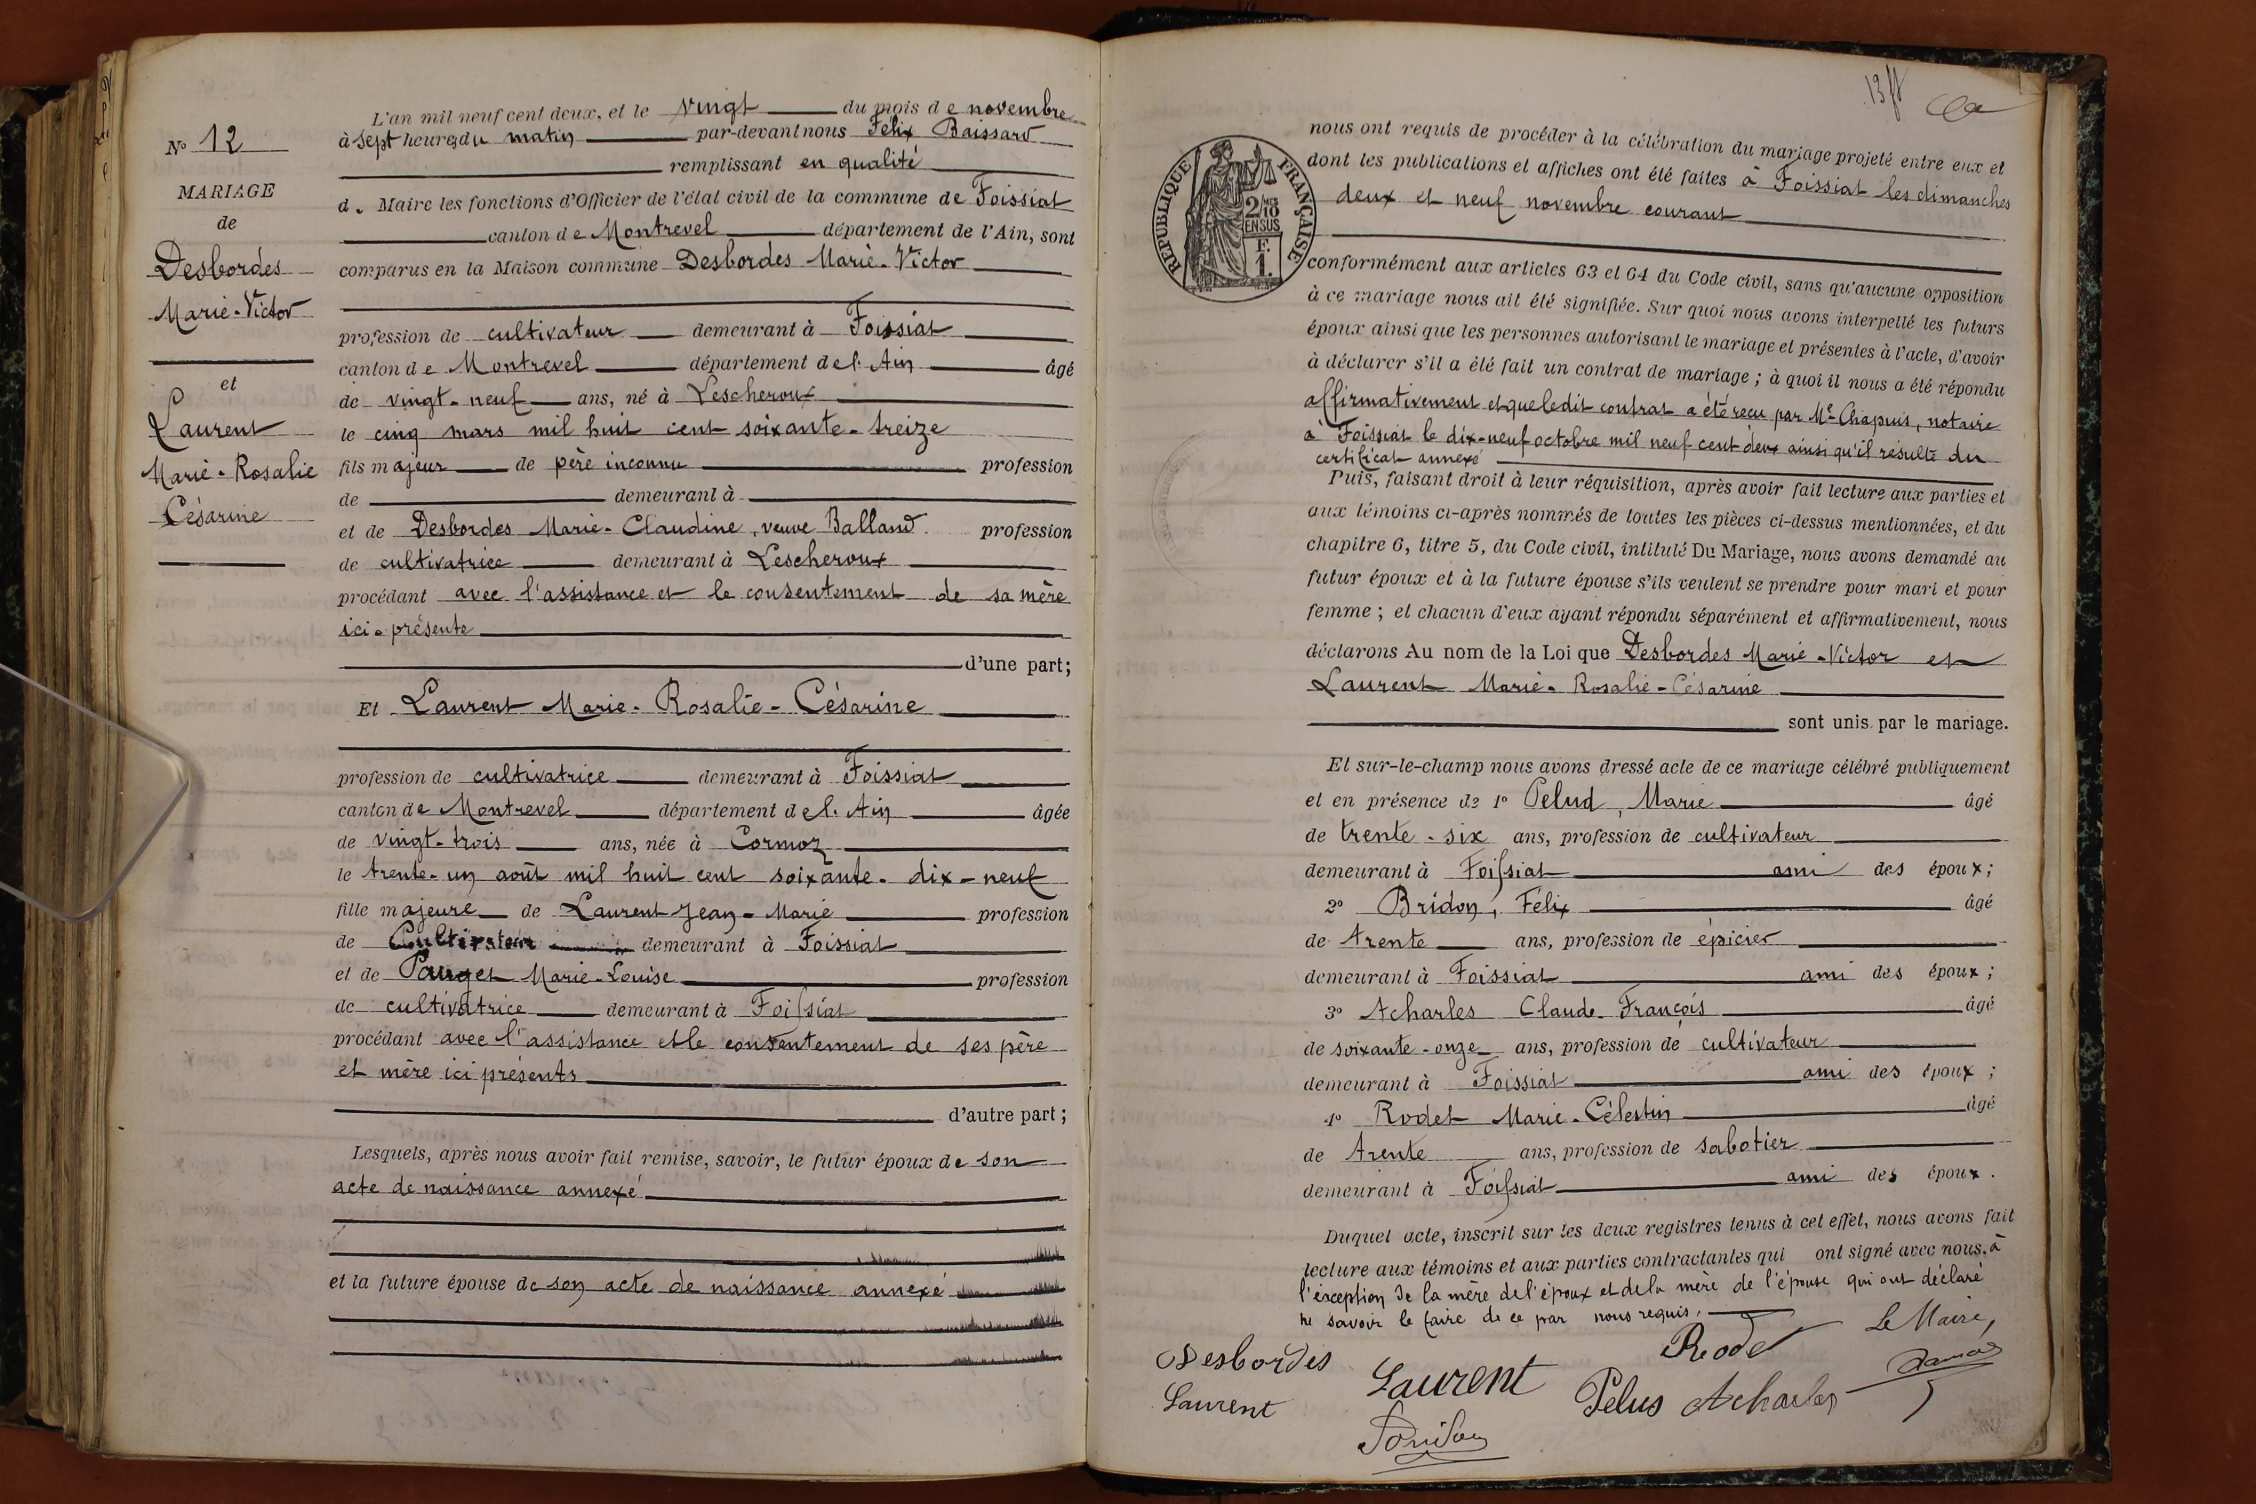 N° 12
MARIAGE
de
Desbordes
Marie-Victor
et
Laurent
Marie-Rosalie
Césarine
L'an mil neuf cent deux, et le vingt du mois de novembre
à sept heures du matin par-devant nous Félix Baissard
remplissant en qualité
d. Maire les fonctions d'Officier de l'état civil de la commune de Foissiat
canton de Montrevel département de l'Ain, sont
comparus en la Maison commune Desbordes Marie-Victor
profession de cultivateur demeurant à Foissiat
canton de Montrevel département de l'Ain âgé
de vingt-neuf ans, né à Lescheroux
le cinq mars mil huit cent soixante-treize
fils majeur de père inconnu profession
de demeurant à
et de Desbordes Marie-Claudine, veuve Balland profession
de cultivatrice demeurant à Lescheroux
procédant avec l'assistance et le consentement de sa mère
ici-présente
d'une part;
Et Laurent Marie-Rosalie-Césarine
profession de cultivatrice demeurant à Foissiat
canton de Montrevel département de l'Ain âgée
de vingt-trois ans, née à Cormoz
le trente-un août mil huit cent soixante-dix-neuf
fille majeure de Laurent Jean-Marie profession
de Cultivateur demeurant à Foissiat
et de Pauget Marie-Louise profession
de cultivatrice demeurant à Foissiat
procédant avec l'assistance et le consentement de ses père
et mère ici présents
d'autre part;
Lesquels, après nous avoir fait remise, savoir, le futur époux de son
acte de naissance annexé
et la future épouse de son acte de naissance annexé
RÉPUBLIQUE FRANÇAISE
2/10
EN SUS
F.
1.
nous ont requis de procéder à la célébration du mariage projeté entre eux et
dont les publications et affiches ont été faites à Foissiat les dimanches
deux et neuf novembre courant
conformément aux articles 63 et 64 du Code civil, sans qu'aucune opposition
à ce mariage nous ait été signifiée. Sur quoi nous avons interpellé les futurs
époux ainsi que les personnes autorisant le mariage et présentes à l'acte, d'avoir
à déclarer s'il a été fait un contrat de mariage; à quoi il nous a été répondu
affirmativement et que ledit contrat a été reçu par Me Chapuis, notaire
à Foissiat le dix-neuf octobre mil neuf cent deux ainsi qu'il résulte du
certificat annexé
Puis, faisant droit à leur réquisition, après avoir fait lecture aux parties et
aux témoins ci-après nommés de toutes les pièces ci-dessus mentionnées, et du
chapitre 6, titre 5, du Code civil, intitulé Du Mariage, nous avons demandé au
futur époux et à la future épouse s'ils veulent se prendre pour mari et pour
femme; et chacun d'eux ayant répondu séparément et affirmativement, nous
déclarons Au nom de la Loi que Desbordes Marie-Victor et
Laurent Marie-Rosalie-Césarine
sont unis par le mariage.
Et sur-le-champ nous avons dressé acte de ce mariage célébré publiquement
et en présence de 1° Pelud, Marie âgé
de trente-six ans, profession de cultivateur
demeurant à Foissiat ami des époux;
2° Bridon, Félix âgé
de trente ans, profession de épicier
demeurant à Foissiat ami des époux;
3° Acharles Claude-François âgé
de soixante-onze ans, profession de cultivateur
demeurant à Foissiat ami des époux;
4° Rodet Marie-Célestin âgé
de trente ans, profession de sabotier
demeurant à Foissiat ami des époux.
Duquel acte, inscrit sur les deux registres tenus à cet effet, nous avons fait
lecture aux témoins et aux parties contractantes qui ont signé avec nous, à
l'exception de la mère de l'époux et de la mère de l'épouse qui ont déclaré
ne savoir le faire de ce par nous requis.
Le Maire,
Desbordes
Laurent
Rodet
Laurent
Pelus Acharles